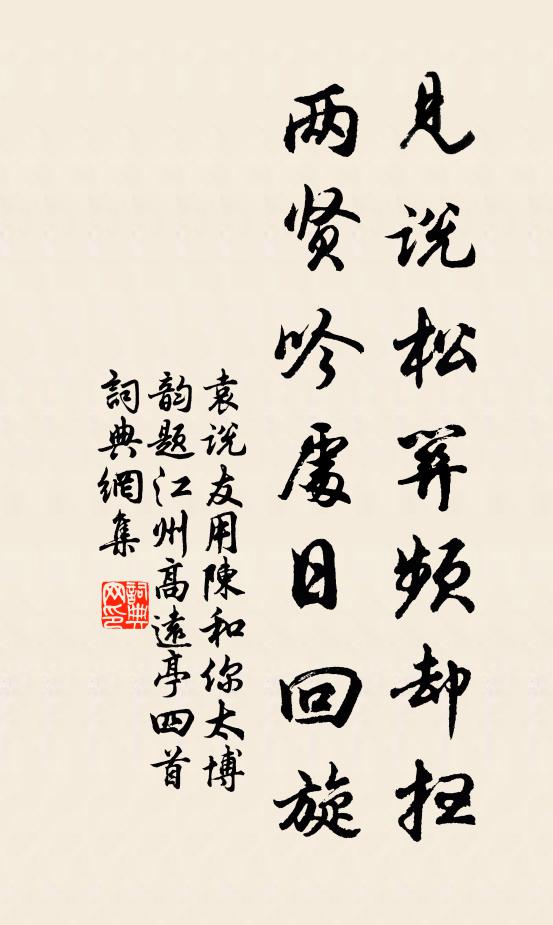 见说松关频却扫
两贤吟處日回旋
袁说友用陳和你太博
韵题江州高遠亭四首
詞典網集
詞典网印